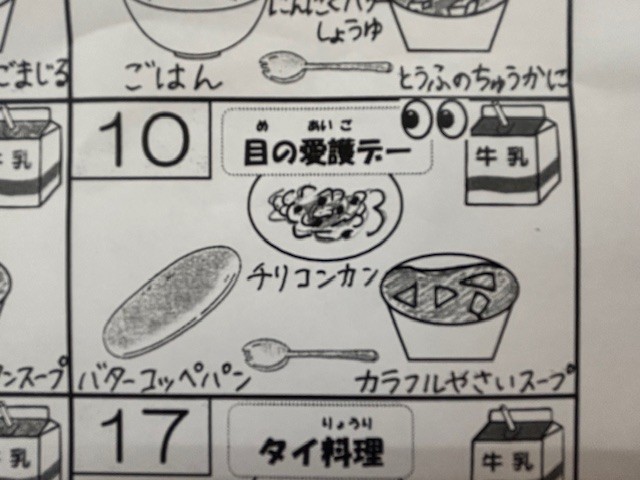 にんにくバター
しょうゆ
ごまじる
ごはん
とうふのちゅうかに
10
め あいご
目の愛護デー
牛乳
牛乳
チリコンカン
ンスープ
バターコッペパン
カラフルやさいスープ
17
りょうり
タイ料理
牛乳
乳